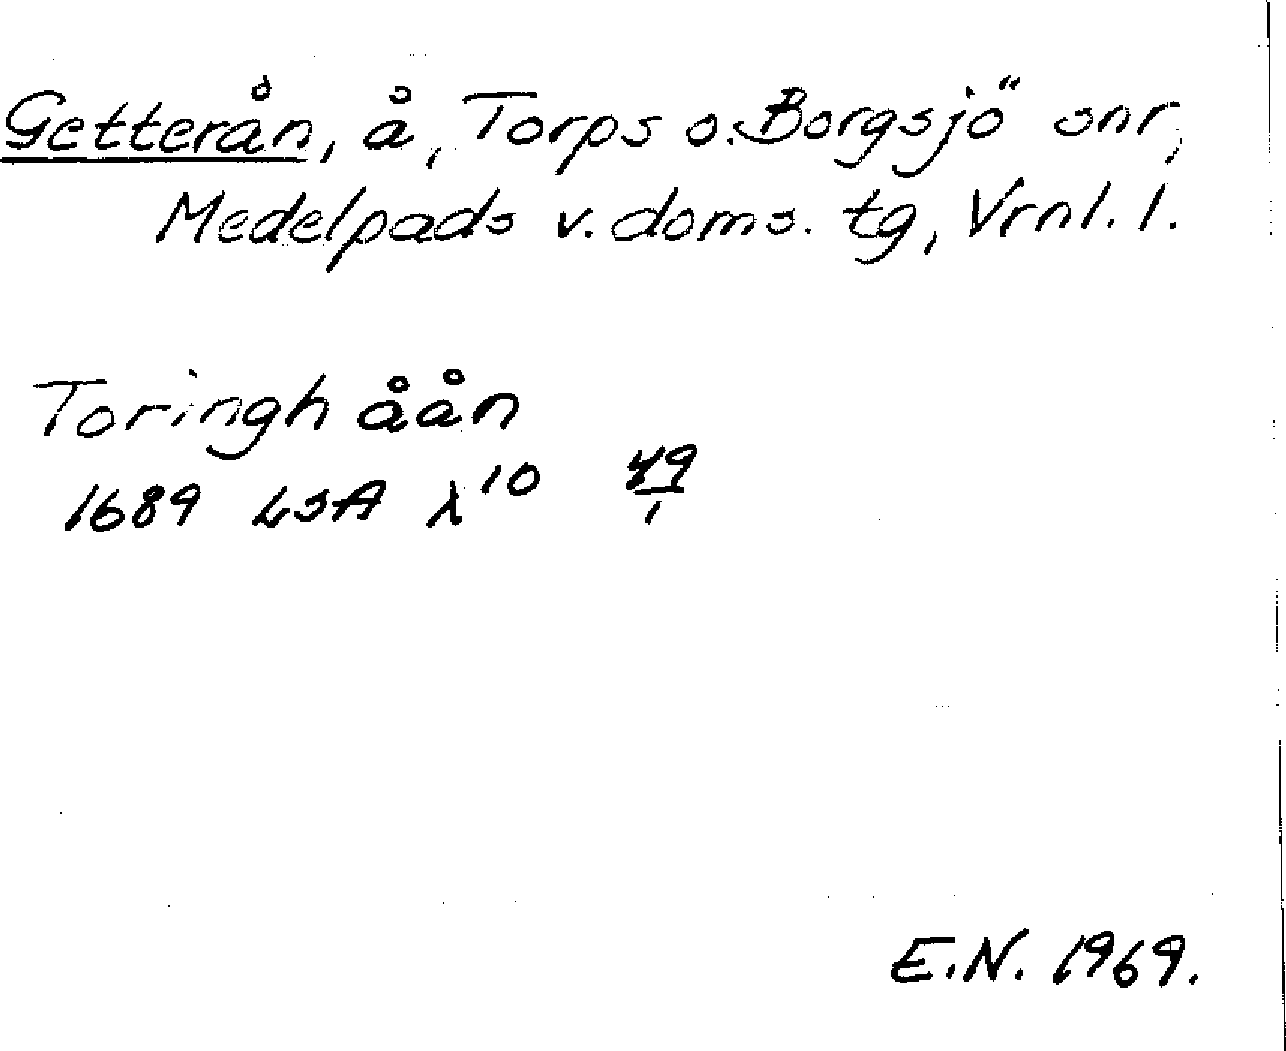 Getterån, å, Torps o. Borgsjö snr,
Medelpads v. doms. tg, Vrnl. l.
Toringh åån
1689 LSA λ10 49/1
E.N. 1969.